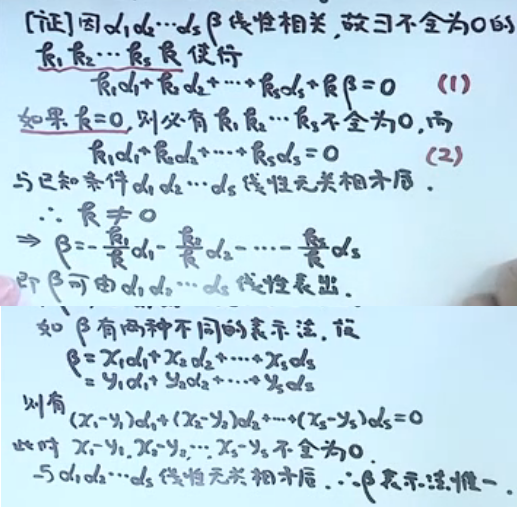 [证]因α₁α₂⋯αₛβ线性相关,故∃不全为0的
k₁k₂⋯kₛ k 使得
k₁α₁+k₂α₂+⋯+kₛαₛ+kβ=0 (1)
如果k=0,则必有k₁k₂⋯kₛ不全为0,而
k₁α₁+k₂α₂+⋯+kₛαₛ=0 (2)
与已知条件α₁α₂⋯αₛ线性无关相矛盾.
∴ k≠0
⇒ β=-k₁/k α₁-k₂/k α₂-⋯-kₛ/k αₛ
即β可由α₁α₂⋯αₛ线性表出.
如β有两种不同的表示法,设
β=x₁α₁+x₂α₂+⋯+xₛαₛ
=y₁α₁+y₂α₂+⋯+yₛαₛ
则有
(x₁-y₁)α₁+(x₂-y₂)α₂+⋯+(xₛ-yₛ)αₛ=0
此时 x₁-y₁,x₂-y₂,⋯,xₛ-yₛ不全为0.
与α₁α₂⋯αₛ线性无关相矛盾.∴β表示法惟一.